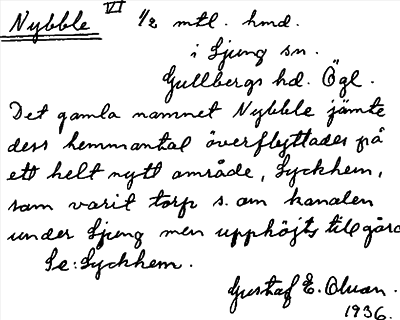 Nybble VI 1/2 mtl. hmd.
i Ljung sn.
Gullbergs hd. Ögl.
Det gamla namnet Nybble jämte
dess hemmantal överflyttades på
ett helt nytt område, Lyckhem,
som varit torp s. om kanalen
under Ljung men upphöjts till gård
Se: Lyckhem.
Gustaf E. Oluan.
1936.